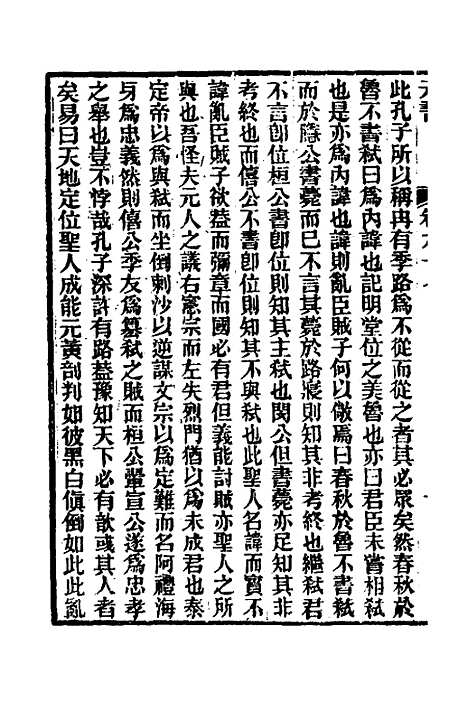 此孔子所以稱冉有季路爲不從而從之者其必眾矣然春秋於
魯不書弑曰爲內諱也記明堂位之美魯也亦曰君臣未嘗相弑
也是亦爲內諱也諱則亂臣賊子何以儆焉曰春秋於魯不書弑
而於隱公書薨而已不言其薨於路寢則知其非考終也繼弑君
不言卽位桓公書卽位則知其主弑也閔公但書薨亦足知其非
考終也而僖公不書卽位則知其不與弑也此聖人名諱而實不
諱亂臣賊子欲蓋而彌章而國必有君但義能討賊亦聖人之所
與也吾怪夫元人之議右憲宗而左失烈門猶以爲未成君也泰
定帝以爲與弑而坐倒剌沙以逆謀文宗以爲定難而名阿禮海
牙爲忠義然則僖公季友爲篡弑之賊而桓公翬宣公遂爲忠孝
之舉也豈不悖哉孔子深許有路蓋豫知天下必有歆或其人者
矣易曰天地定位聖人成能元黃剖判如彼黑白傎倒如此此亂